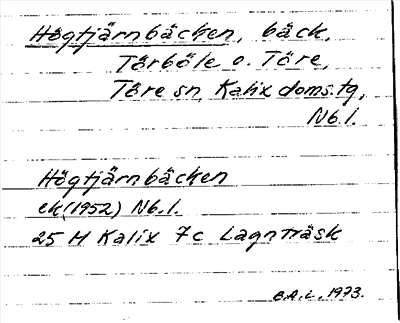 Högtjärnbäcken, bäck,
Törböle o. Töre,
Töre sn, Kalix doms.tg,
Nb.l.
Högtjärnbäcken
ek (1952) Nb.l.
25 M Kalix 7c Lagnträsk
C.A.L. 1973.